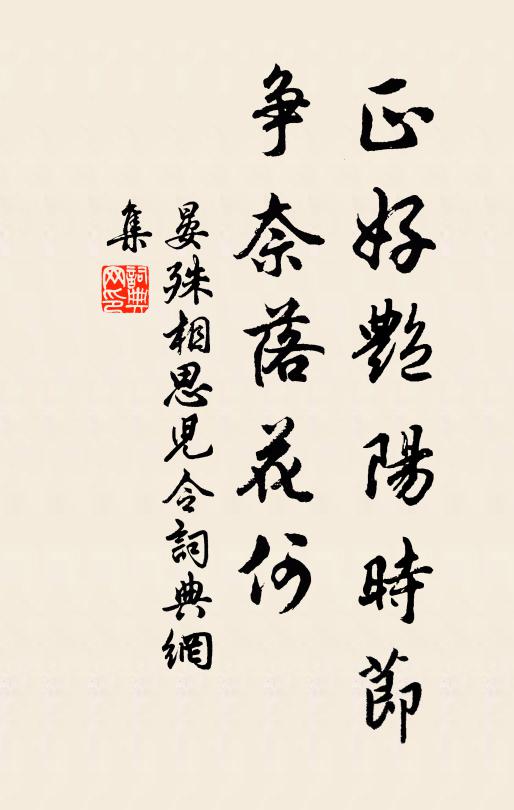 正好艷陽時節
爭奈落花何
晏殊相思兒令詞典網
集
詞典網印